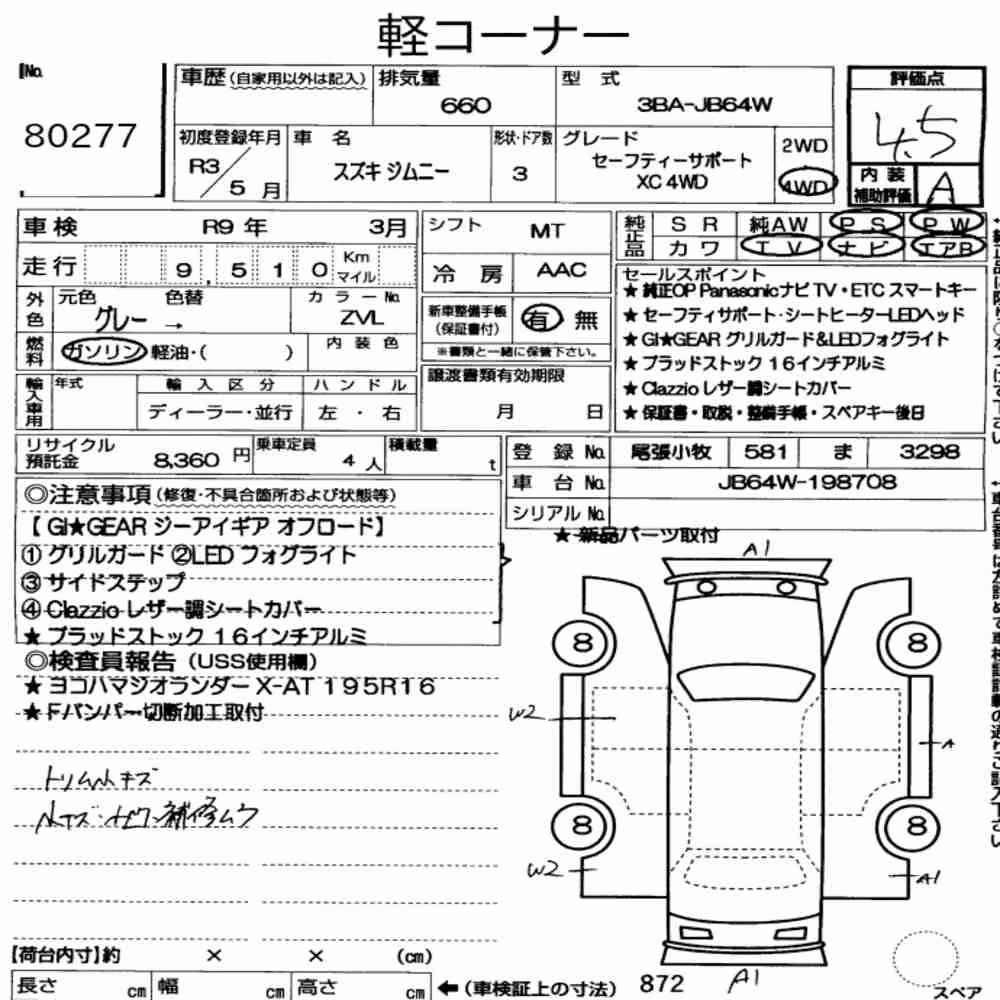 軽コーナー
No.
80277
車歴 (自家用以外は記入)
排気量
660
型 式
3BA-JB64W
評価点
4.5
内装
補助評価
A
初度登録年月
R3/5月
車 名
スズキ ジムニー
形状・ドア数
3
グレード
セーフティーサポート
XC 4WD
2WD
4WD
車検 R9年 3月
走行 9,510 Km マイル
シフト MT
冷 房 AAC
純正品
SR 純AW PS PW
カワ TV ナビ エアB
外色
元色 色替
グレー →
カラーNo.
ZVL
燃料
ガソリン 軽油・( )
内装色
新車整備手帳
(保証書付)
有 無
※書類と一緒に保管下さい。
セールスポイント
★ 純正OP Panasonicナビ TV・ETC スマートキー
★ セーフティサポート・シートヒーターLEDヘッド
★ GI★GEAR グリルガード&LEDフォグライト
★ ブラッドストック 16インチアルミ
★ Clazzio レザー調シートカバー
★ 保証書・取説・整備手帳・スペアキー後日
輸入車用
年式
輸入区分
ディーラー・並行
ハンドル
左 ・ 右
譲渡書類有効期限
月 日
リサイクル
預託金
8,360 円
乗車定員
4 人
積載量
t
登 録 No. 尾張小牧 581 ま 3298
車 台 No. JB64W-198708
シリアル No.
◎注意事項 (修復・不具合箇所および状態等)
【 GI★GEAR ジーアイギア オフロード】
① グリルガード ②LED フォグライト
③ サイドステップ
④ Clazzio レザー調シートカバー
★ ブラッドストック 16インチアルミ
★ 新品パーツ取付
◎検査員報告 (USS使用欄)
★ ヨコハマジオランダー X-AT 195R16
★ Fバンパー切断加工取付
A1
8
8
W2
A
8
8
W2
A1
A1
872
【荷台内寸】約 × × (cm)
長さ cm 幅 cm 高さ cm
←(車検証上の寸法)
スペア